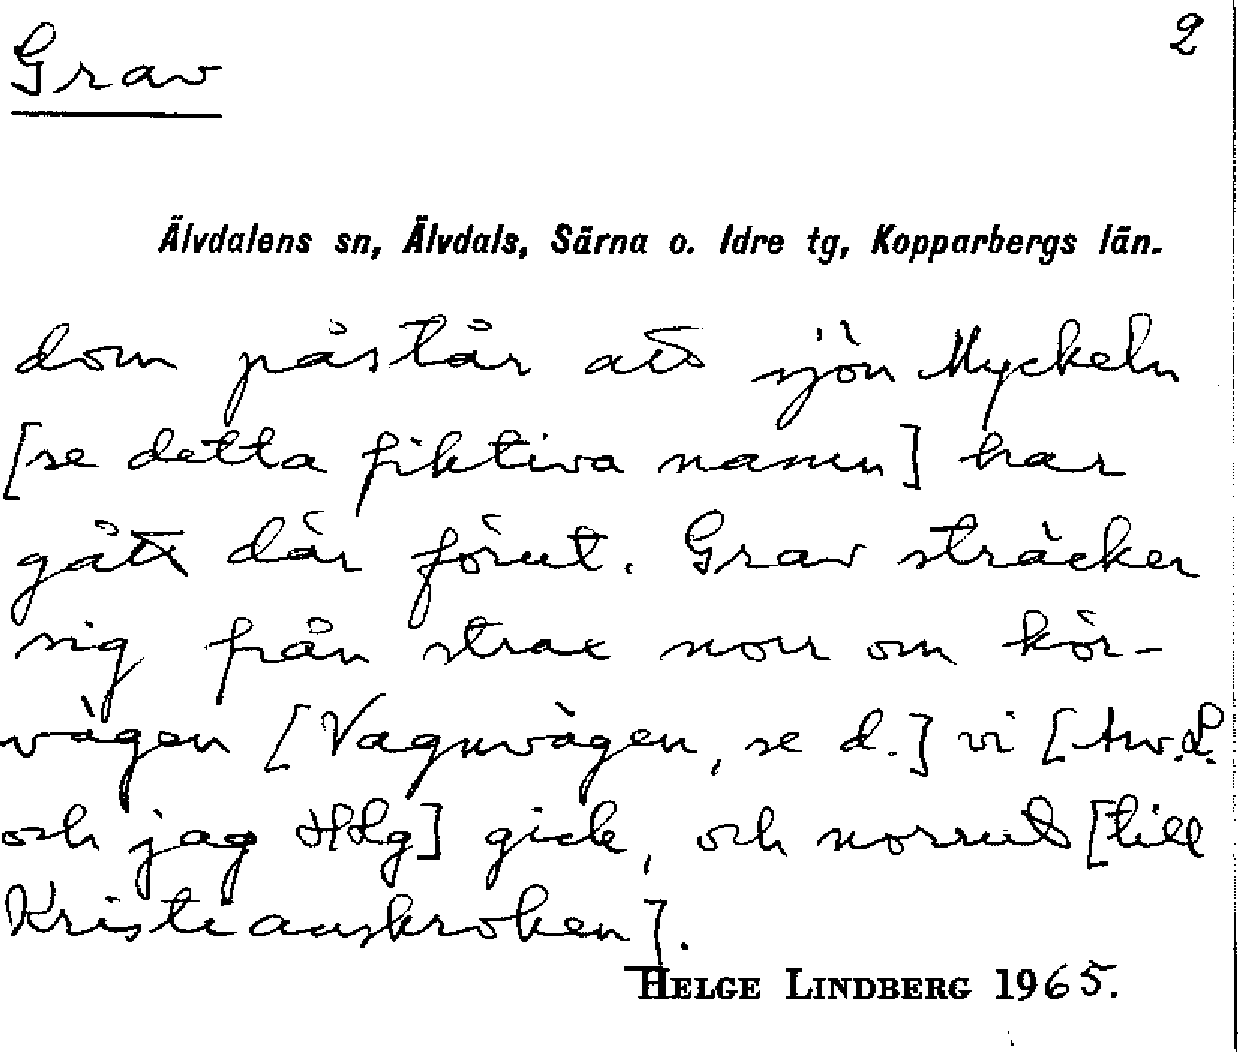 Grav
2
Älvdalens sn, Älvdals, Särna o. Idre tg, Kopparbergs län.
dom påstår att sjön Myckeln
[se detta fiktiva namn] har
gått där förut. Grav sträcker
sig från strax norr om kör-
vägen [Vagnvägen, se d.] vi [Aw.L.
och jag HLg] gick, och norrut [till
Kristianskroken].
HELGE LINDBERG 1965.